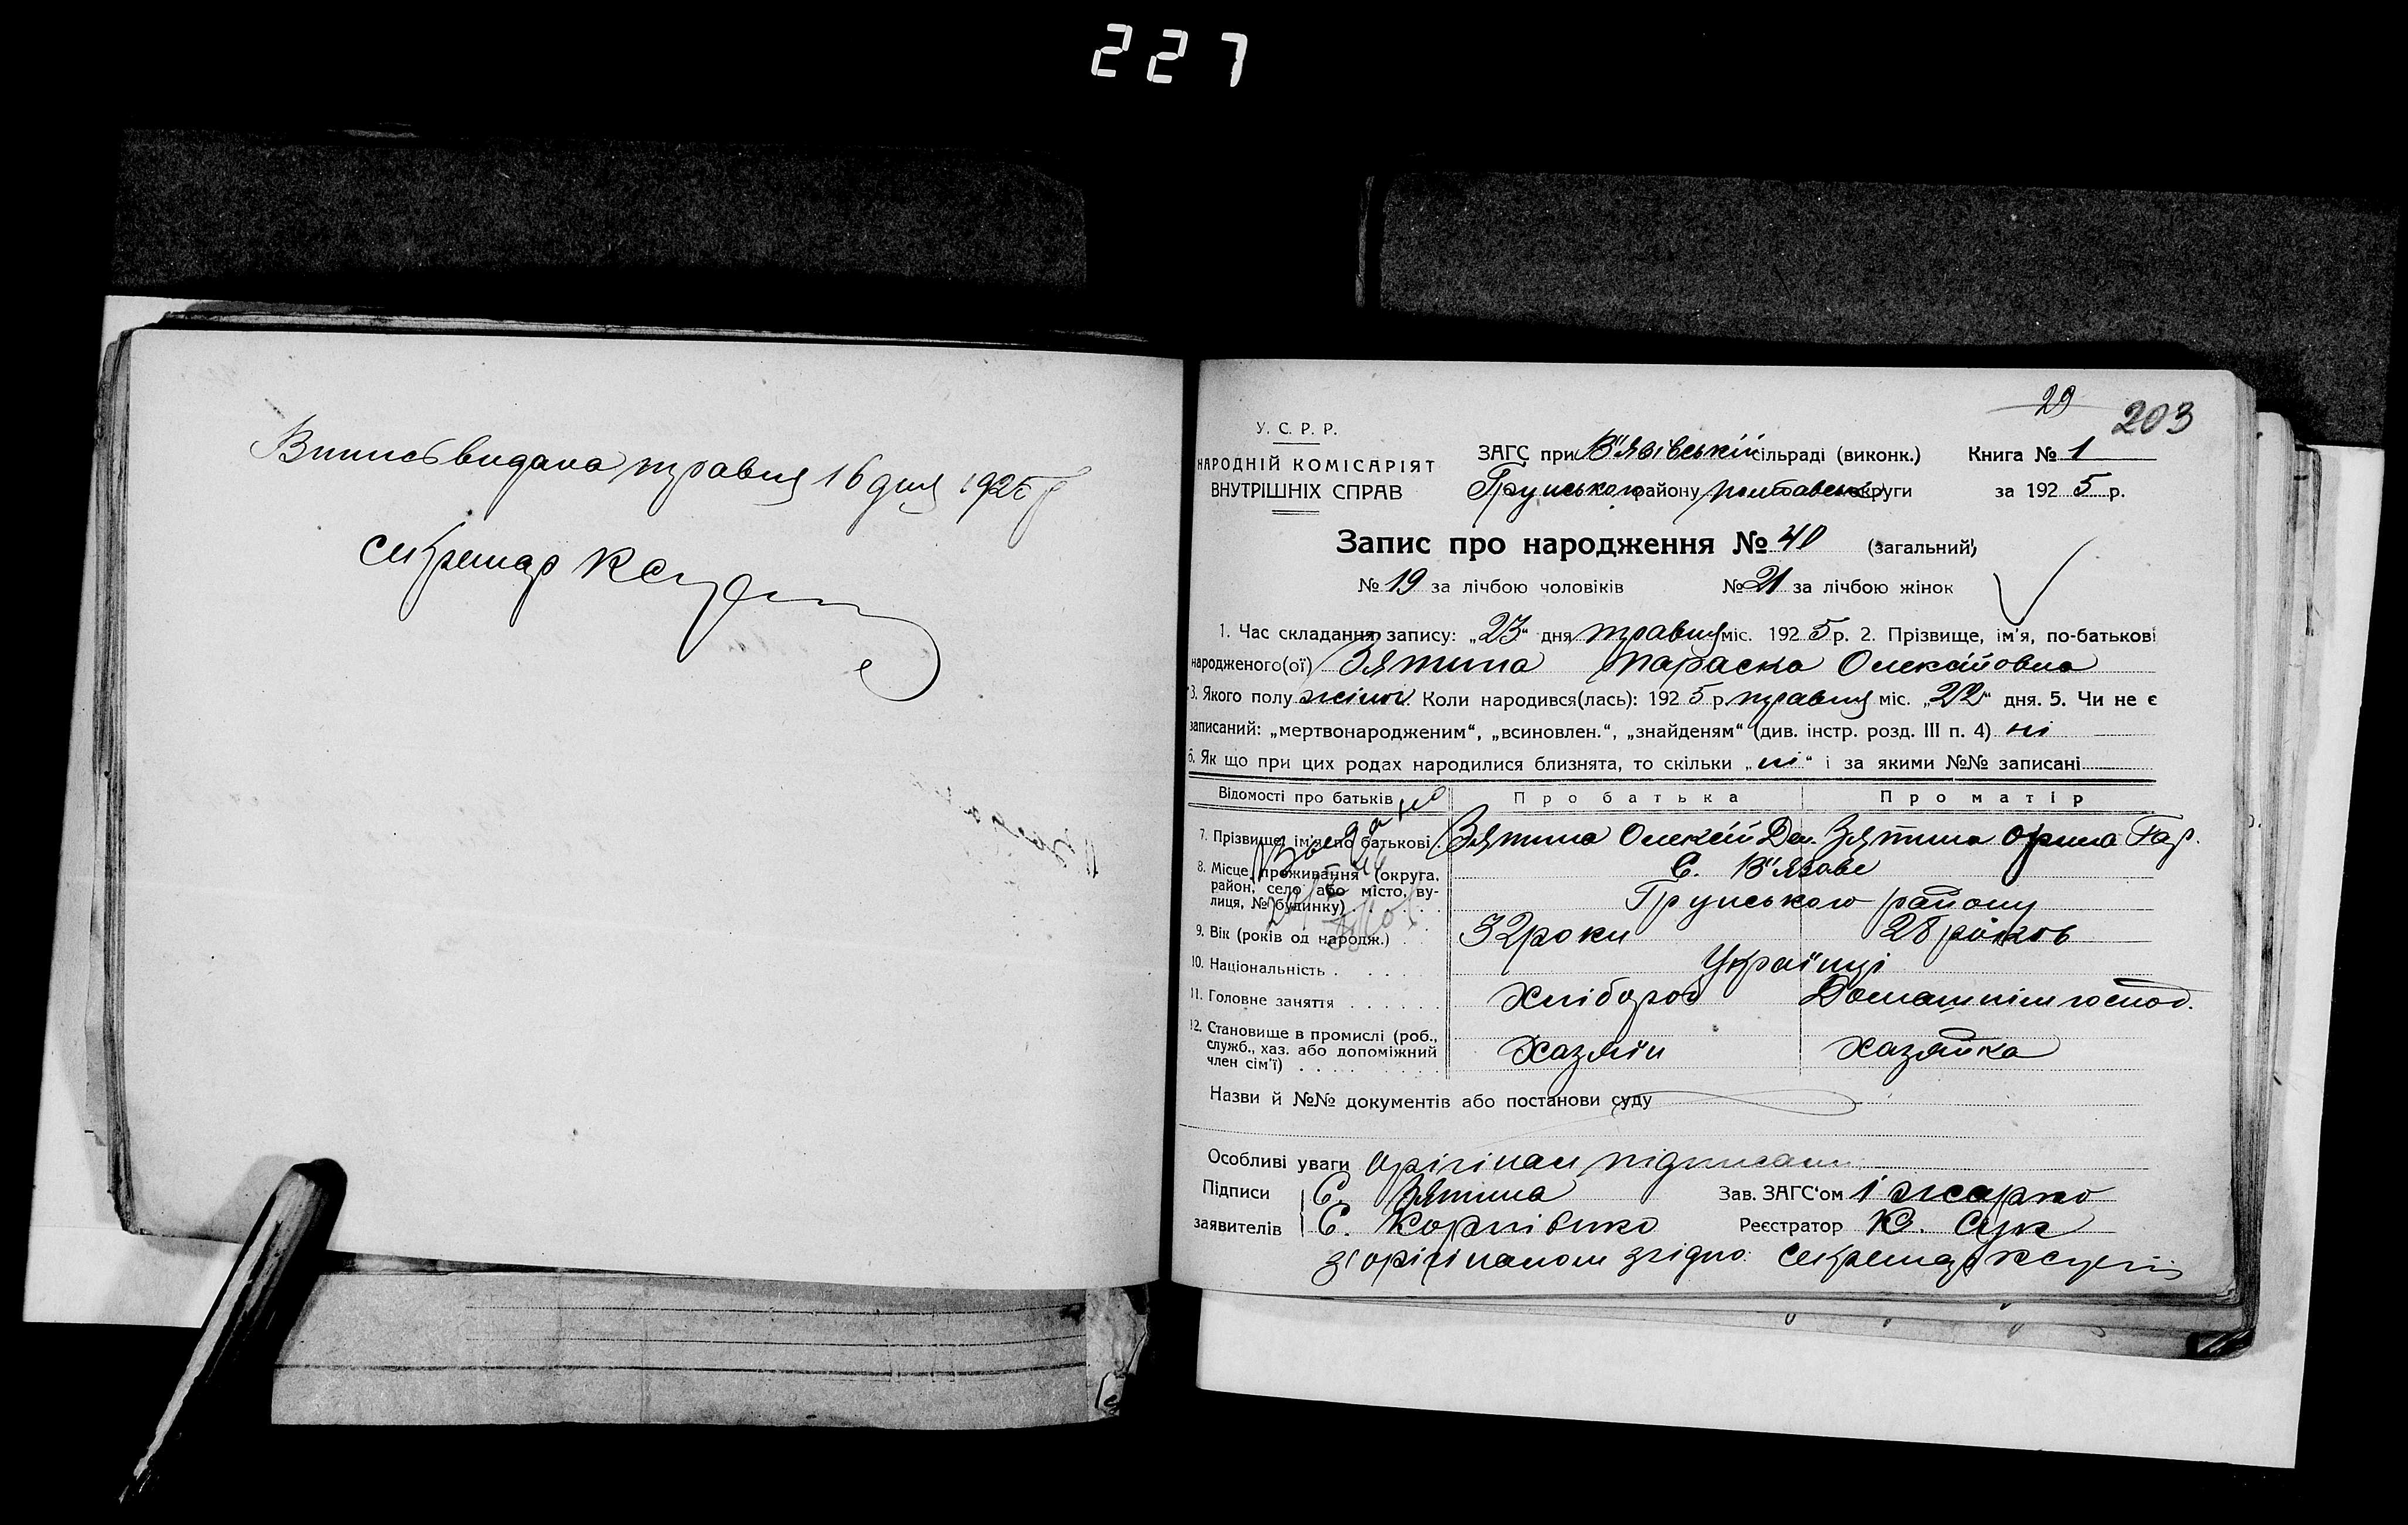 227
Випись видана травня 16 дня 1925 р
секретар
29
203
У. С. Р. Р.
НАРОДНІЙ КОМІСАРІЯТ
ВНУТРІШНІХ СПРАВ
ЗАГС при В'язівській сільраді (виконк.)
Грунського району Полтавськ округи
Книга № 1
за 1925 р.
Запис про народження № 40 (загальний)
№ 19 за лічбою чоловіків № 21 за лічбою жінок
1. Час складання запису: „23“ дня травня міс. 1925 р. 2. Прізвище, ім'я, по-батькові
народженого(ої) Зятина Параска Олексійовна
3. Якого полу жіноч. Коли народився(лась): 1925 р. травня міс. „22“ дня. 5. Чи не є
записаний: „мертвонародженим“, „всиновлен.“, „знайденям“ (див. інстр. розд. III п. 4) ні
6. Як що при цих родах народилися близнята, то скільки „ні“ і за якими №№ записані
Відомості про батьків Про батька Про матір
7. Прізвище, ім'я, по батькові Зятина Олексій Дем. Зятина Орина Гар.
8. Місце проживання (округа, район, село або місто, вулиця, № будинку) С. В'язове
Грунського району
9. Вік (років од народж.) 32 роки 28 років
10. Національність Українці
11. Головне заняття Хлібороб Домашнім господ.
12. Становище в промислі (роб., служб., хаз. або допоміжний член сім'ї) Хазяїн хазяйка
Назви й №№ документів або постанови суду
Особливі уваги Орігінал підписали
Підписи Є. Зятина Зав. ЗАГС'ом І Жарко
заявителів Є. Корнієнко Реєстратор К. Сук
з орігіналом згідно: секретар